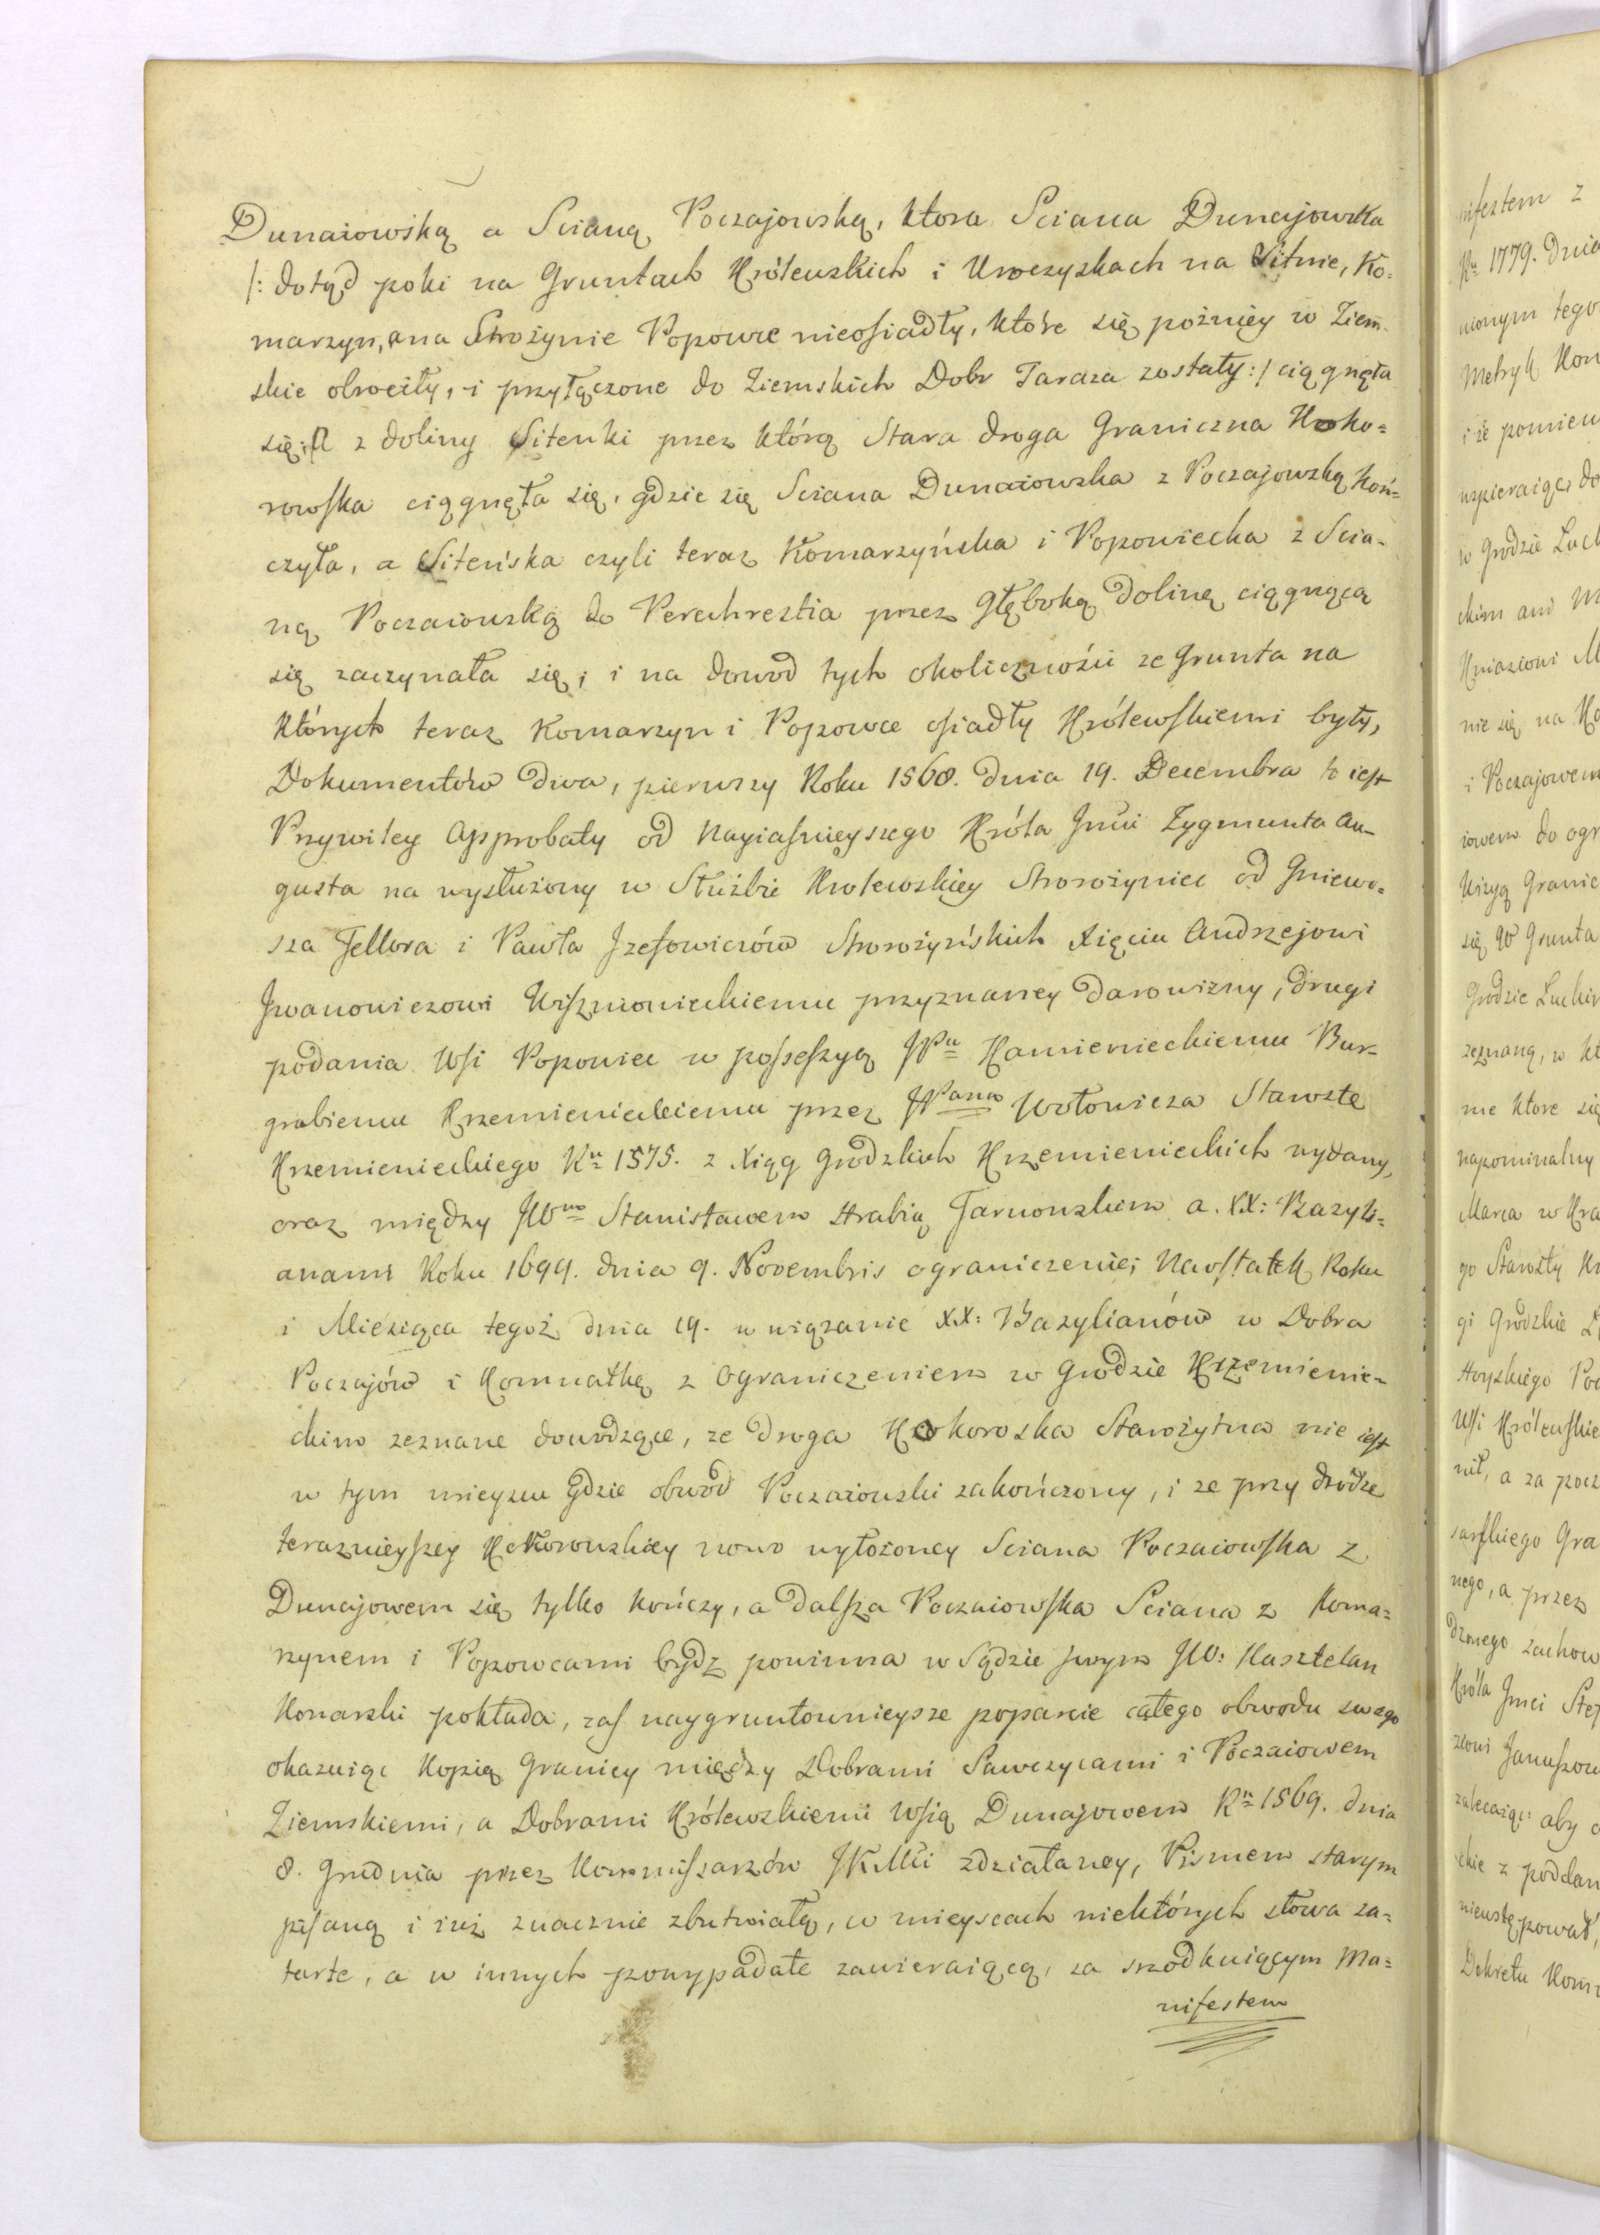 Dunaiowską a Scianą Poczajowską, ktora Sciana Dunajowska
/: dotąd poki na Gruntach Królewskich i Uroczyskach na Sitnie, Ko=
marzyn, ana Strożynie Popowce nieosiadły, które się poźniey w Ziem-
skie obrociły, i przyłączone do Ziemskich Dobr Taraza zostały :/ ciągnęła
się; A z doliny Sitenki przez którą Stara droga Graniczna Koko=
rowska ciągnęła się, gdzie się Sciana Dunaiowska z Poczajowską koń=
czyła, a Siteńska czyli teraz Komarzyńska i Popowiecka z Scia-
ną Poczaiowską do Perechrestia przez Głęboką dolinę ciągnącą
się zaczynała się; i na dowod tych okoliczności ze Grunta na
których teraz Komarzyn i Popowce osiadły Królewskiemi były,
Dokumentów dwa, pierwszy Roku 1568. dnia 19. Decembra to iest
Przywiley Approbaty od Nayiasnieyszego Króla Jmci Zygmunta Au-
gusta na wysłużony w Służbie Krolewskiey Strorożyniec od Gniewo=
sza Fellora i Pawła Jzefowiczów Strorożyńskich Xięciu Andrzejowi
Jwanowiczowi Wiszniowieckiemu przyznaney darowizny, drugi
podania Wsi Popowiec w possessyą JPu Kamienieckiemu Bur-
grabiemu Krzemienieckiemu przez JPana Wołowicza Starostę
Krzemienieckiego Ku 1575. z Xiąg Grodzkich Krzemienieckich wydany,
oraz między JWm Stanisławem Hrabią Tarnowskim a. XX: Bazyli=
anami Roku 1699. dnia 9. Novembris ograniczenie; Naostatek Roku
i Miesiąca tegoż dnia 19. uwiązanie XX: Bazylianów w Dobra
Poczajów i Komnatkę z Ograniczeniem w Grodzie Krzemienie=
ckim zeznane dowodzące, ze droga Kokoroska Starożytna nie iest
w tym mieyscu gdzie obwód Poczaiowski zakończony, i ze przy drodze
teraznieyszey Kokorowskiey nowo wyłożoney Sciana Poczaiowska z
Dunajowem się tylko kończy, a dalsza Poczaiowska Sciana z Koma=
rzynem i Popowcami bydz powinna w Sądzie swym JW: Kasztelan
Konarski pokłada, zas naygruntownieysze poparcie całego obwodu swego
okazuiąc Kopią Granicy między Dobrami Sawczycami i Poczaiowem
Ziemskiemi, a Dobrami Królewskiemi Wsią Dunajowem Ku 1569. dnia
8. Grudnia przez Kommissarzów JKMci zdziałaney, Pismem starym
pisaną i iuż znacznie zbutwiałą, w mieyscach niektórych słowa za=
tarte, a w innych powypadałe zawieraiącą, za srzodkuiącym Ma=
nifestem
nifestem z
Ku 1779. Dnia
tego
Metryk
i że
w Grodzie
nie się na
i Poczajowem
do
Granic
się Grunta
Grodzie
zeznaną, w
nie które się
napominalny
Marca w
go Starosty
gi Grodzkie
Wsi Królewskie
nił, a za
nego, a przez
Króla Jmci
zalecaiąc aby
z
Dekretu